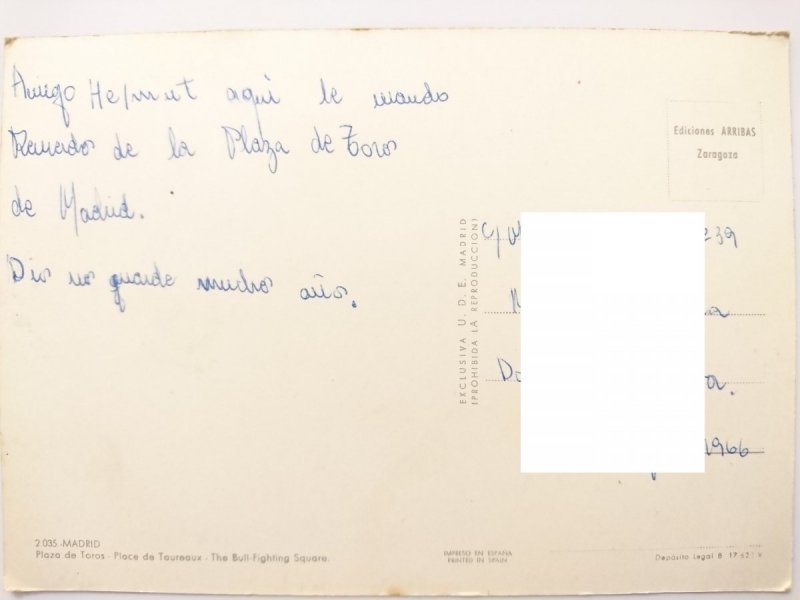 Amigo Helmut aqui le mando
Recuedos de la Plaza de Toros
de Madrid.
Dios nos guarde muchos años.
Ediciones ARRIBAS
Zaragoza
EXCLUSIVA U. D. E. MADRID
(PROHIBIDA LA REPRODUCCION)
C/
239
1966
2.035.-MADRID
Plaza de Toros - Place de Taureaux - The Bull-Fighting Square.
IMPRESO EN ESPAÑA
PRINTED IN SPAIN
Depósito Legal B 17